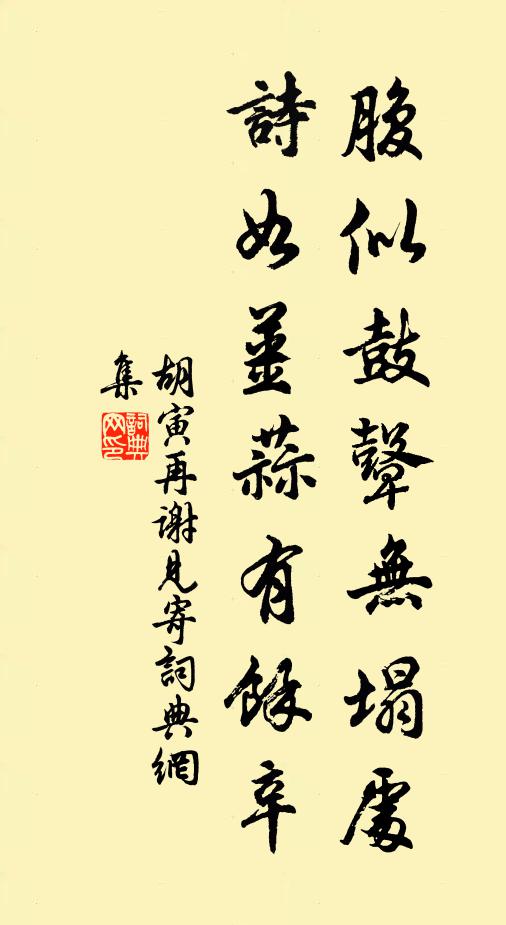 腹似鼓鼙無塌處
詩如薑蒜有餘辛
胡寅再谢見寄詞典網
集
詞典
网印